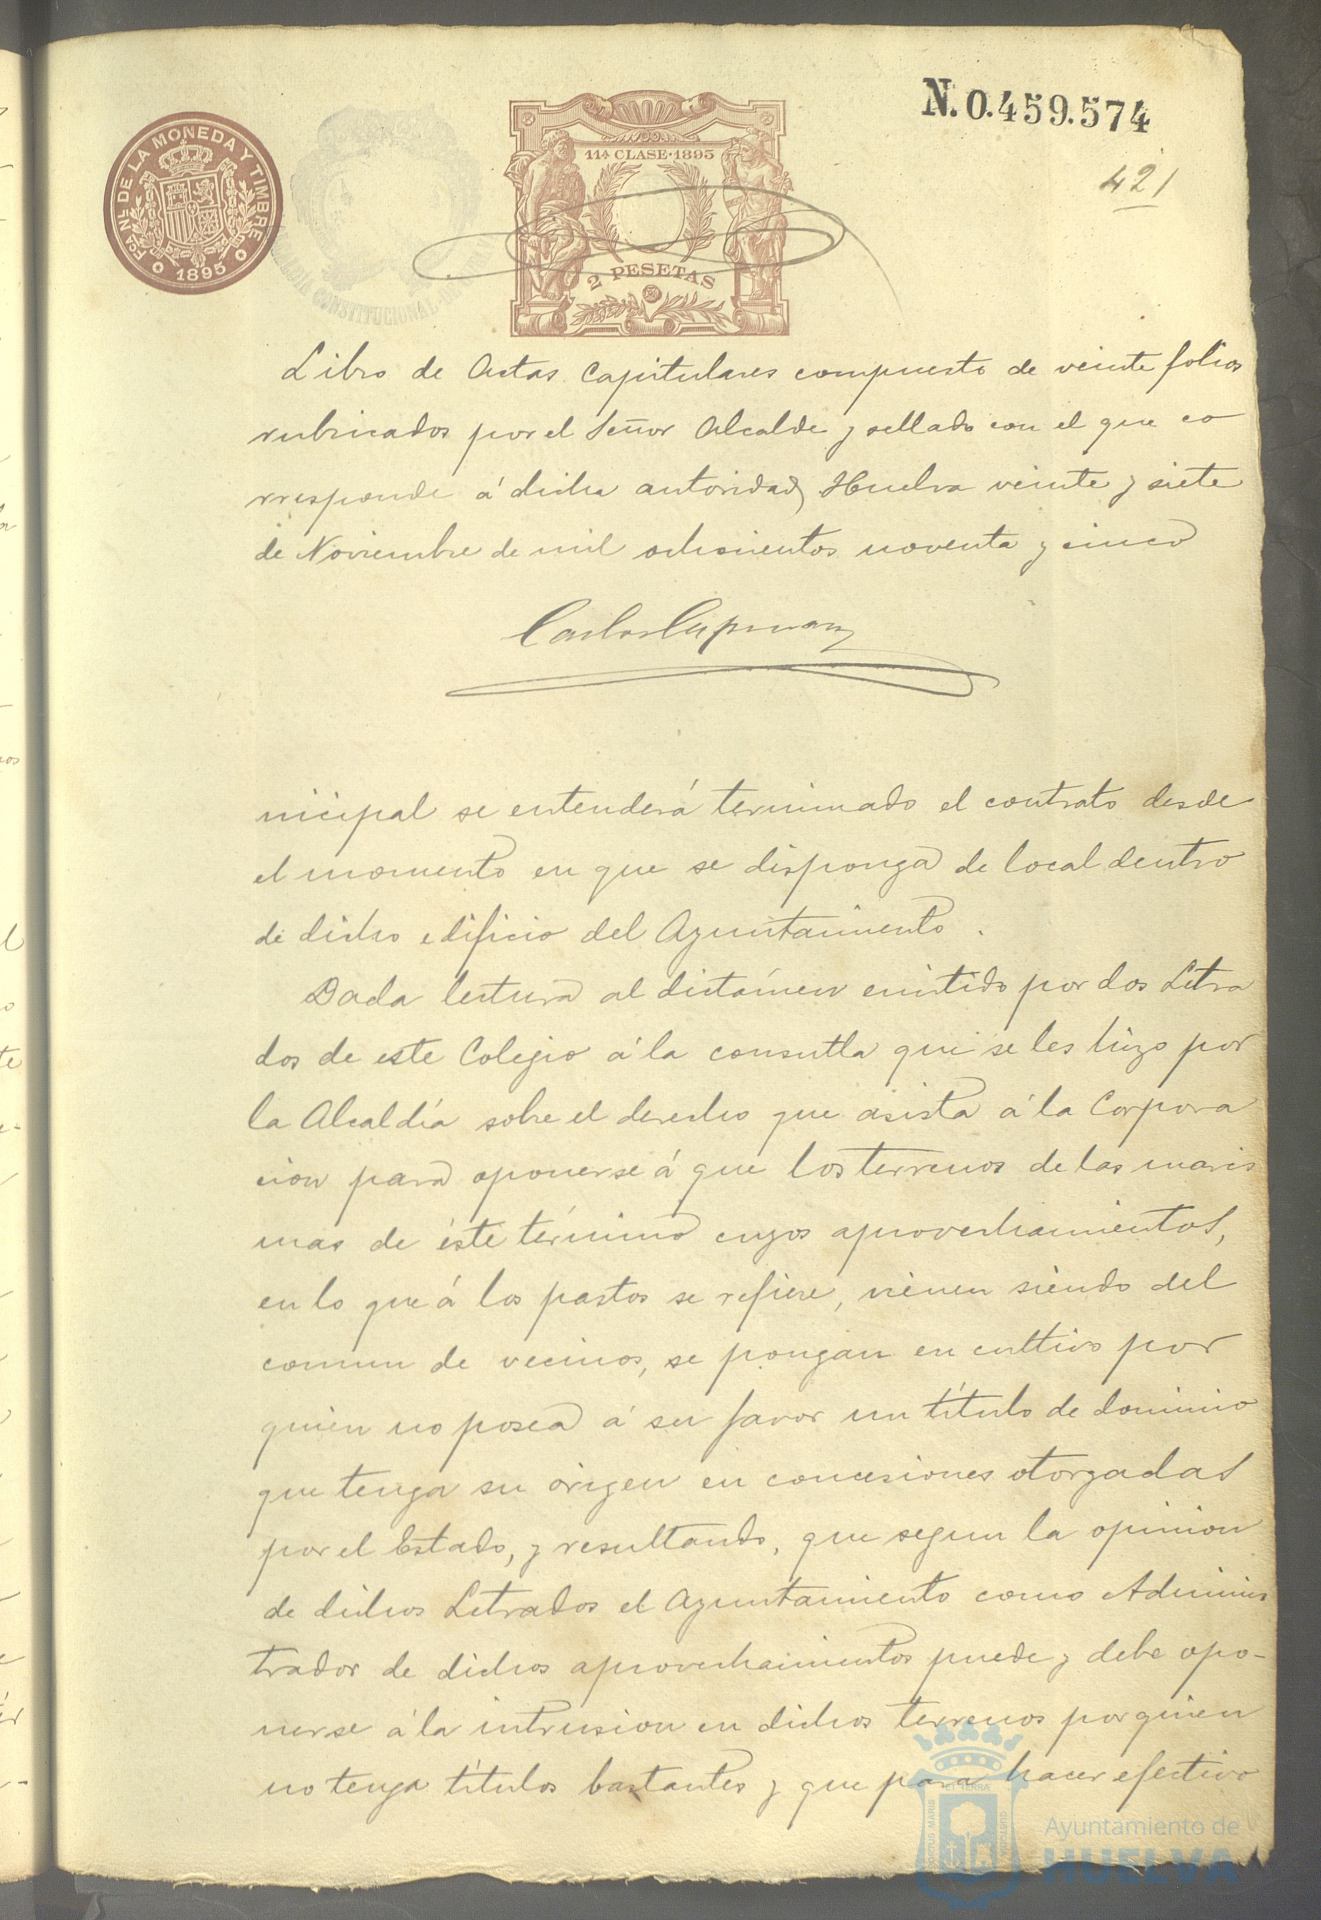 N. 0.459.574
421
FCA NL DE LA MONEDA Y TIMBRE
1895
CONSTITUCIONAL
11ª CLASE · 1895
2 PESETAS
Libro de Actas Capitulares compuesto de veinte folios
rubricados por el Señor Alcalde y sellado con el que co
rresponde á dicha autoridad, Huelva veinte y siete
de Noviembre de mil ochocientos noventa y cinco
Carlos
nicipal se entenderá terminado el contrato desde
el momento en que se disponga de local dentro
de dicho edificio del Ayuntamiento.
Dada lectura al dictámen emitido por dos Letra
dos de este Colegio á la consulta que se les hizo por
la Alcaldía sobre el derecho que asista á la Corpora
cion para oponerse á que los terrenos de las maris
mas de éste término cuyos aprovechamientos,
en lo que á los pastos se refiere, vienen siendo del
comun de vecinos, se pongan en cultivo por
quien no posea á su favor un título de dominio
que tenga su origen en concesiones otorgadas
por el Estado, y resultando, que segun la opinion
de dichos Letrados el Ayuntamiento como Adminis
trador de dichos aprovechamientos puede y debe opo-
nerse á la intrusion en dichos terrenos por quien
no tenga títulos bastantes y que para hacer efectivo
Ayuntamiento de
HUELVA